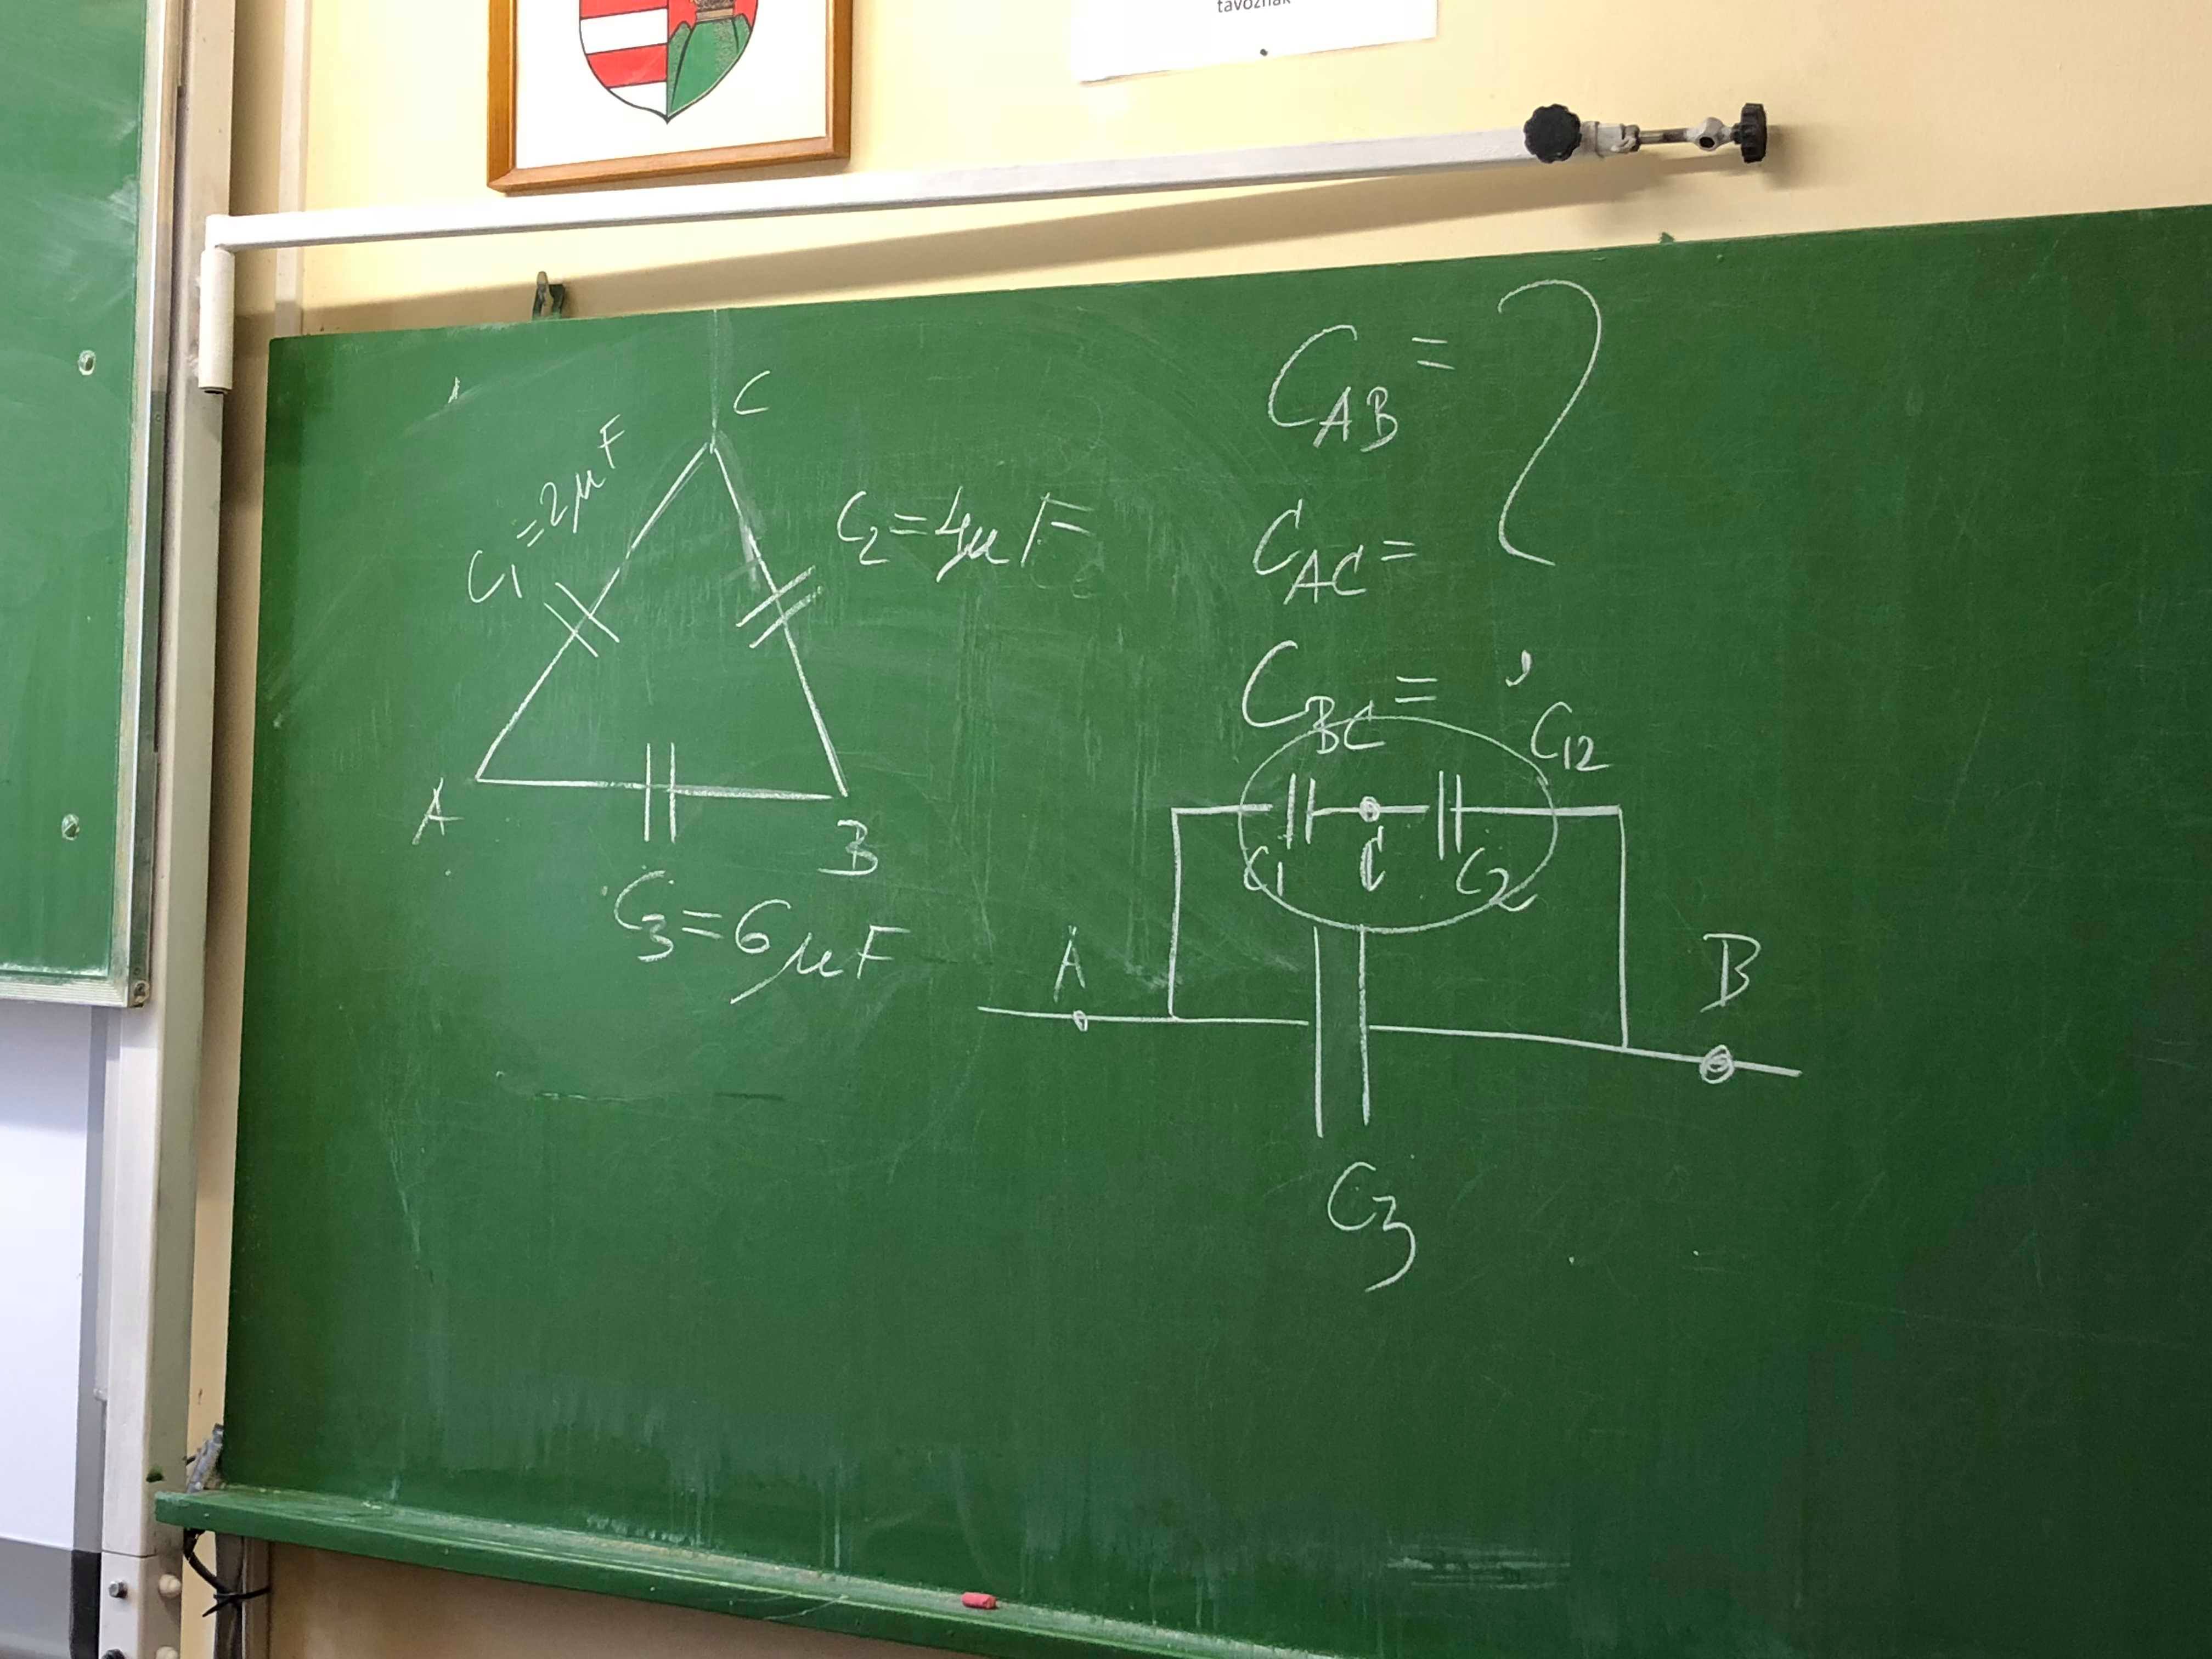 távoznak
C
C₁=2μF
C₂=4μF
A
B
C₃=6μF
C_AB=
C_AC=
?
C_BC=
C₁₂
C₁ C C₂
A
B
C₃